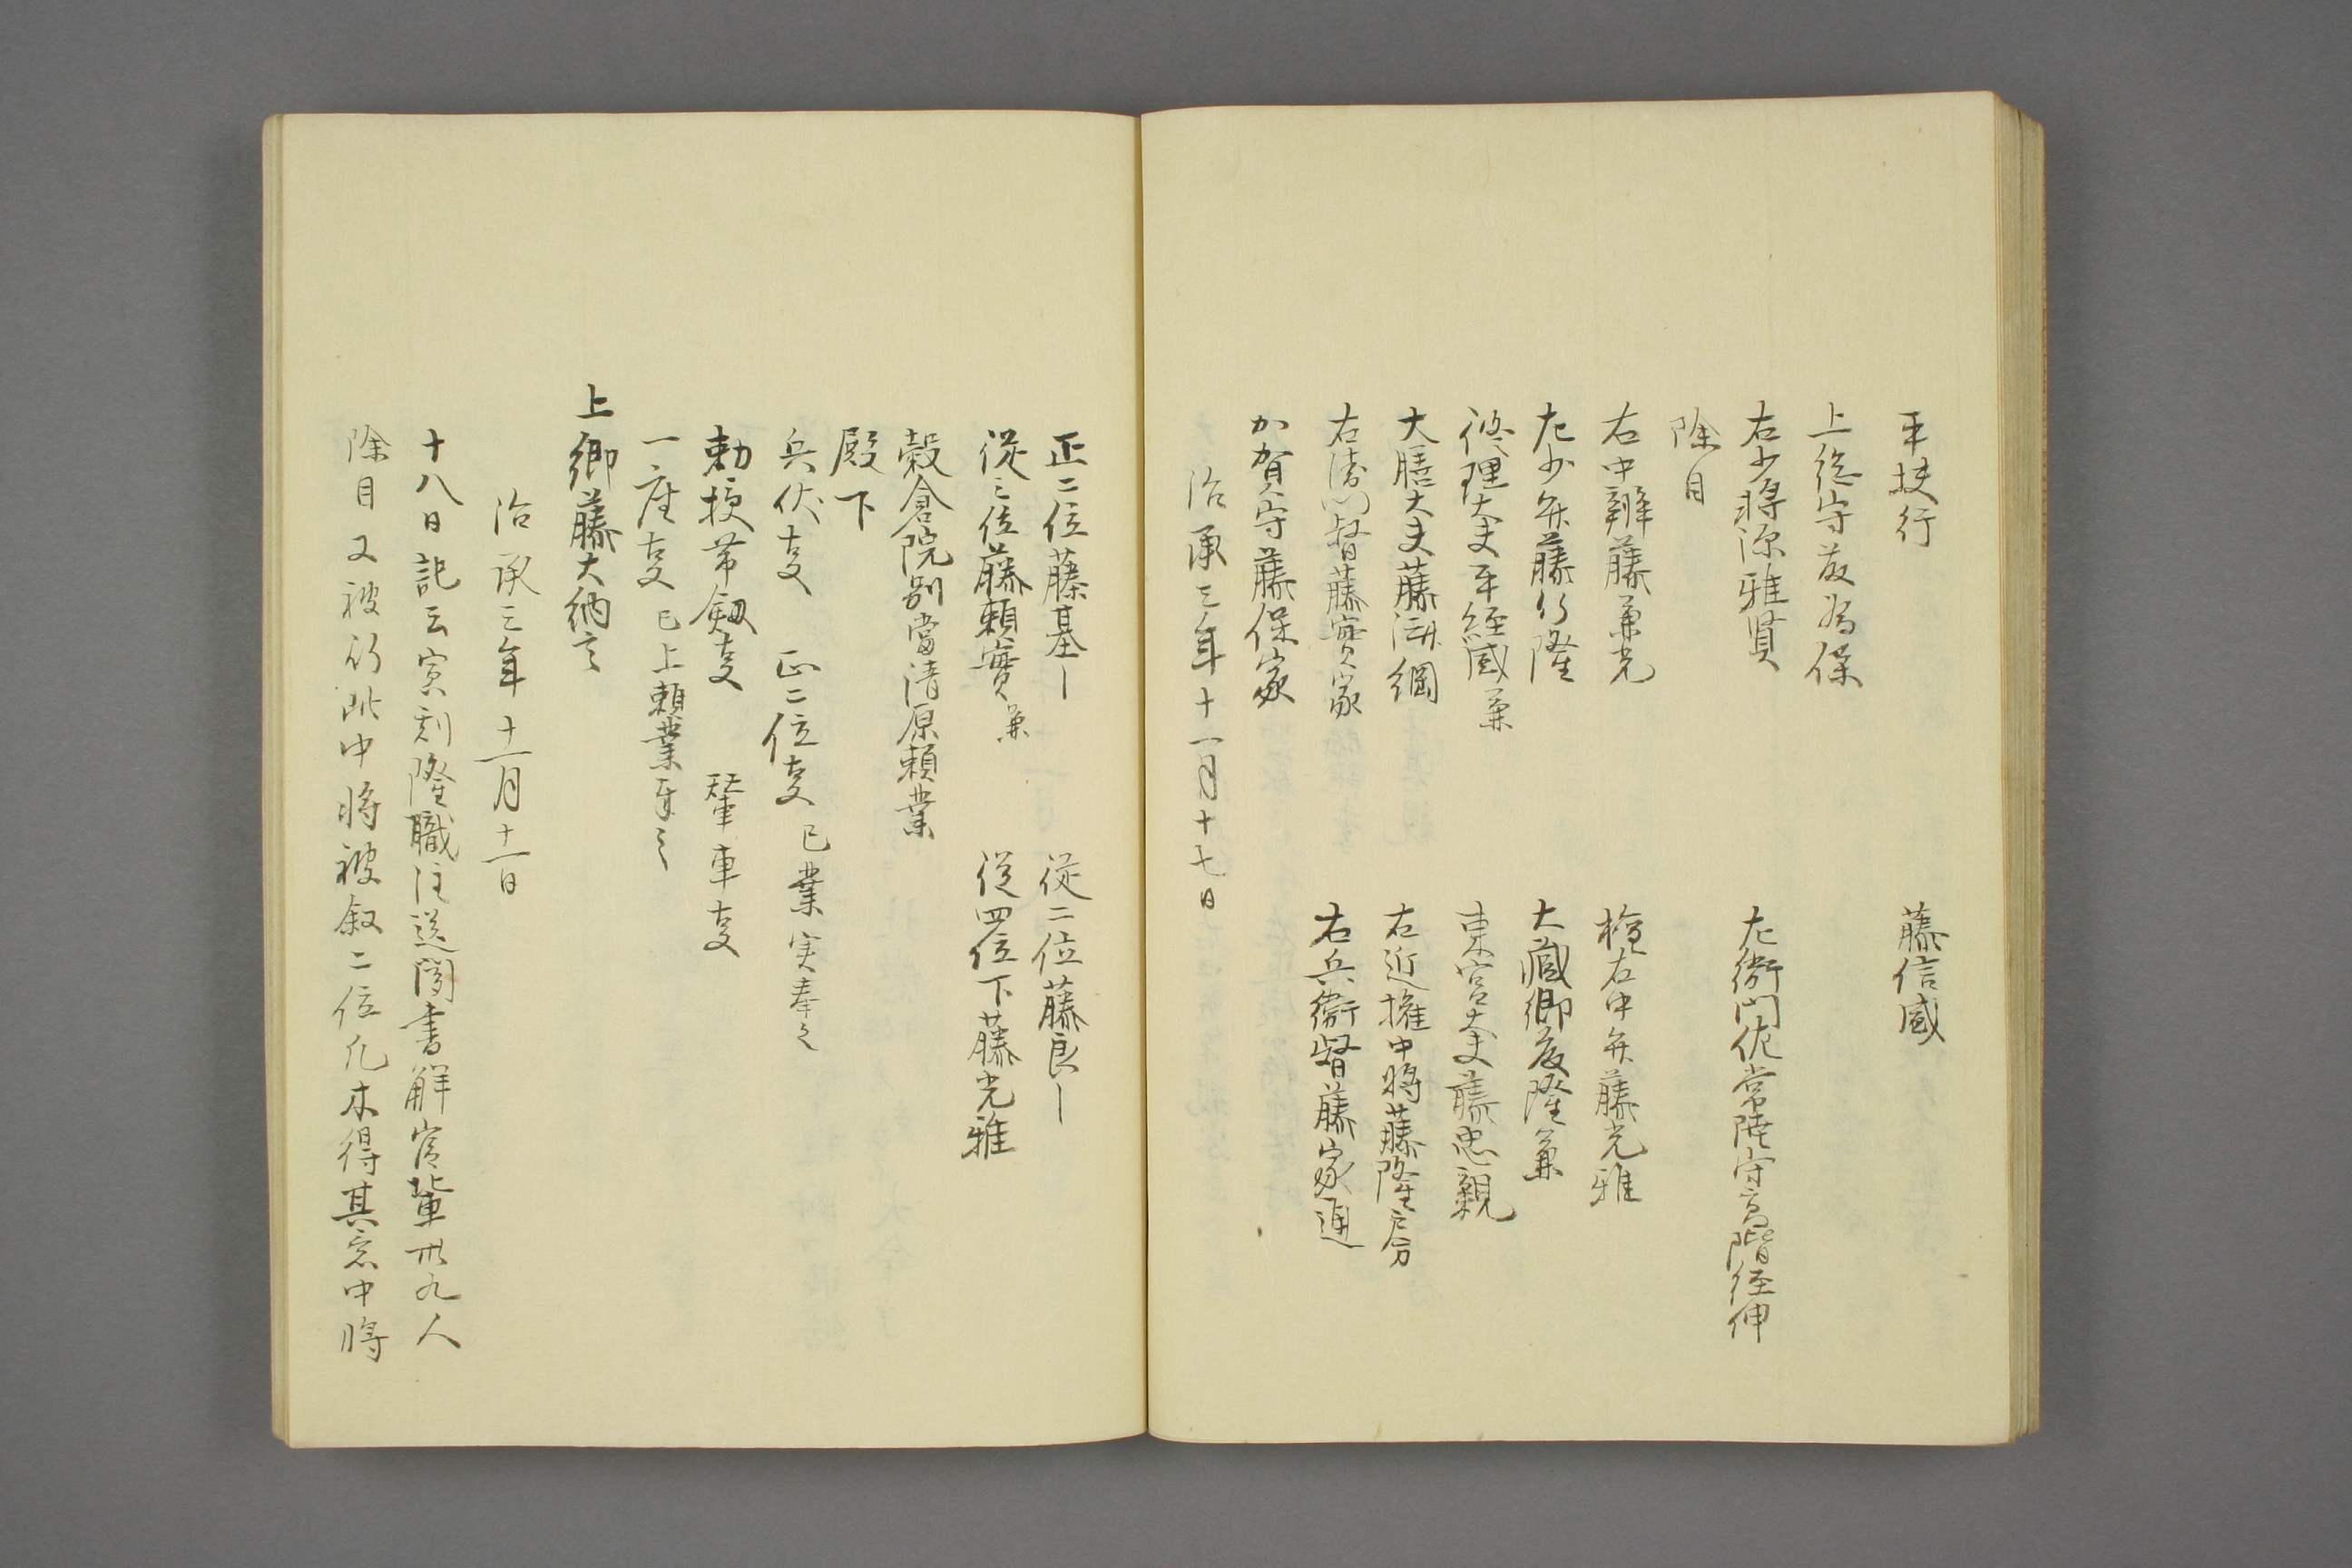 平扶行　藤信盛
上総守藤為保
右少将源雅賢　左衛門佐常陸守高階経仲
除目
右中辨藤兼光　権右中弁藤光雅
左少弁藤行隆　大蔵卿藤隆兼
修理大夫平経盛兼　東宮大夫藤忠親
大膳大夫藤済綱　右近権中将藤隆房
右衛門督藤實家　右兵衛督藤家通
加賀守藤保家
治承三年十一月十七日
正二位藤基｜　従二位藤良｜
従三位藤頼實兼　従四位下藤光雅
穀倉院別當清原頼業
殿下
兵仗㕝　正二位㕝已業実奉之
勅授帯剱㕝　輦車㕝
一座㕝已上頼業奉之
上卿藤大納言
治承三年十一月十一日
十八日記云寅刻隆職注送聞書解官輩卅九人
除目又被行此中将被叙二位凡未得其意中将